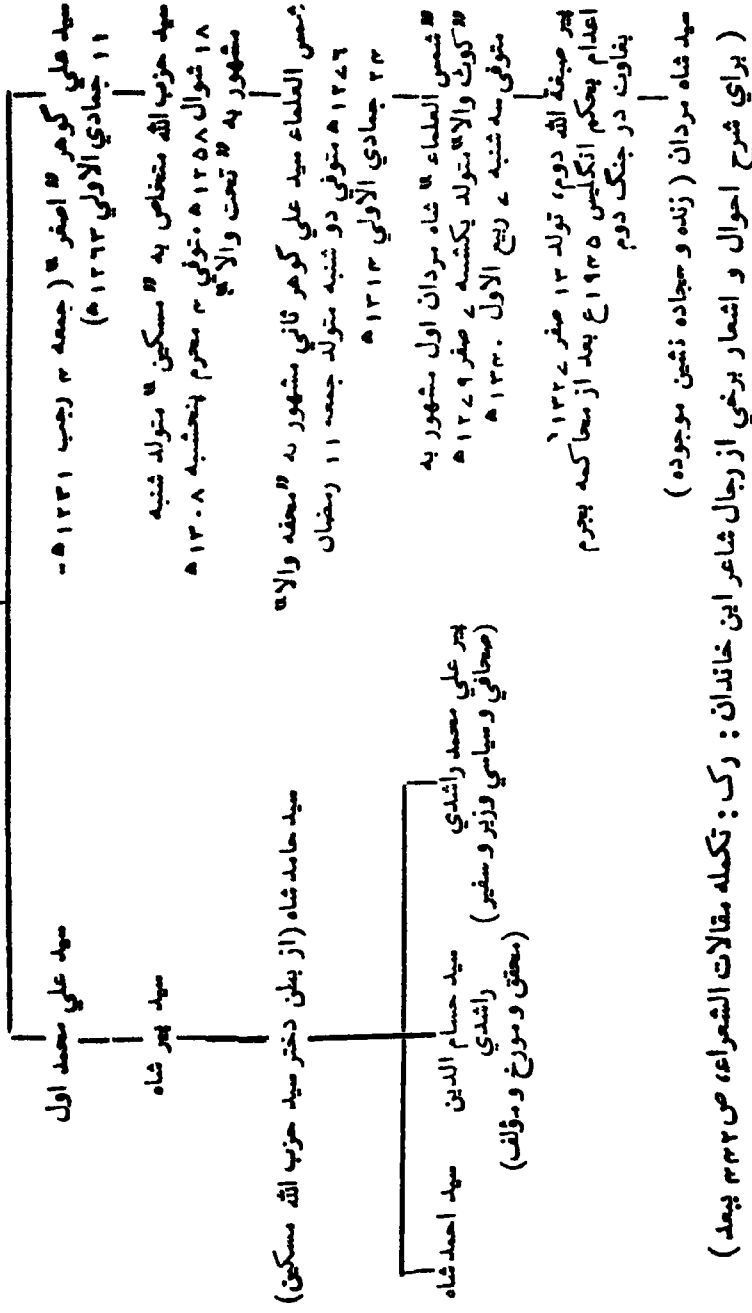 سيد علي گوهر "اصغر" (جمعه ۴ رجب ۱۲۳۱ ه-
۱۱ جمادي الاولي ۱۲۶۳ ه)
سيد حزب الله متخلص به "مسكين" متولد شنبه
۱۸ شوال ۱۲۵۸ ه، توفي ۴ محرم پنجشنبه ۱۳۰۸ ه
مشهور به "تخت والا"
شمس العلماء سيد علي گوهر ثاني مشهور به "محفه والا"
متولد جمعه ۱۱ رمضان
۱۲۷۶ ه متوفي دو شنبه
۲۳ جمادي الاولي ۱۳۱۴ ه
"شمس العلماء" شاه مردان اول مشهور به
"كوٹ والا" متولد يكشنبه ۷ صفر ۱۲۷۹ ه
متوفي سه شنبه ۷ ربيع الاول ۱۳۴۰ ه
پير صبغة الله دوم، تولد ۱۳ صفر ۱۳۲۷
اعدام بحكم انگليس ۱۹۴۵ع بعد از محاكمه بجرم
بغاوت در جنگ دوم
سيد شاه مردان (زنده و سجاده نشين موجوده)
سيد علي محمد اول
سيد پير شاه
سيد حامد شاه (از بطن دختر سيد حزب الله مسكين)
پير علي محمد راشدي
(صحافي و سياسي وزير و سفير)
سيد حسام الدين
راشدي
(محقق و مورخ و مؤلف)
سيد احمد شاه
(براي شرح احوال و اشعار برخي از رجال شاعر اين خاندان: رک: تكمله مقالات الشعراء، ص ۴۴۲ ببعد)